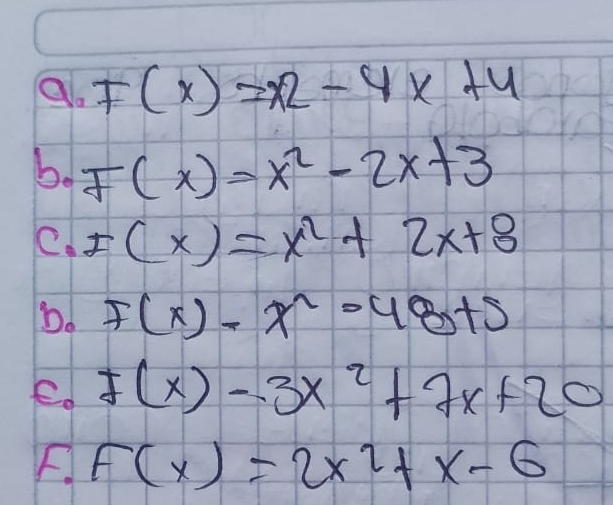 a. F(x) = x2 - 4x + 4
b. F(x) = x² - 2x + 3
c. F(x) = x² + 2x + 8
D. F(x) - x² - 48 + 5
E. F(x) - 3x² + 7x + 20
F. F(x) = 2x² + x - 6